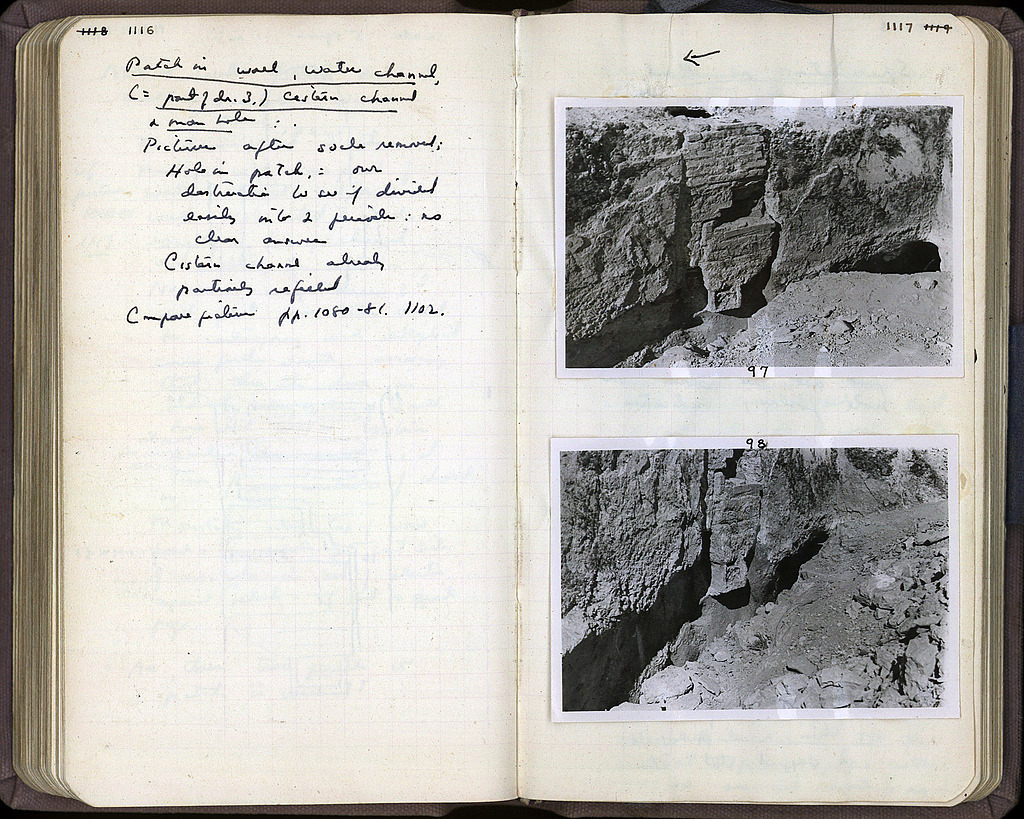 1118 1116
Patch in wall, water channel,
(= part of dr. 3.) cistern channel
& man hole :
Picture after socle removed;
Hole in patch, : our
destruction to see if divided
easily into 2 periods : no
clear answer
Cistern channel already
partially refilled
Compare picture pp. 1080-81. 1102.
1117 1119
97
98